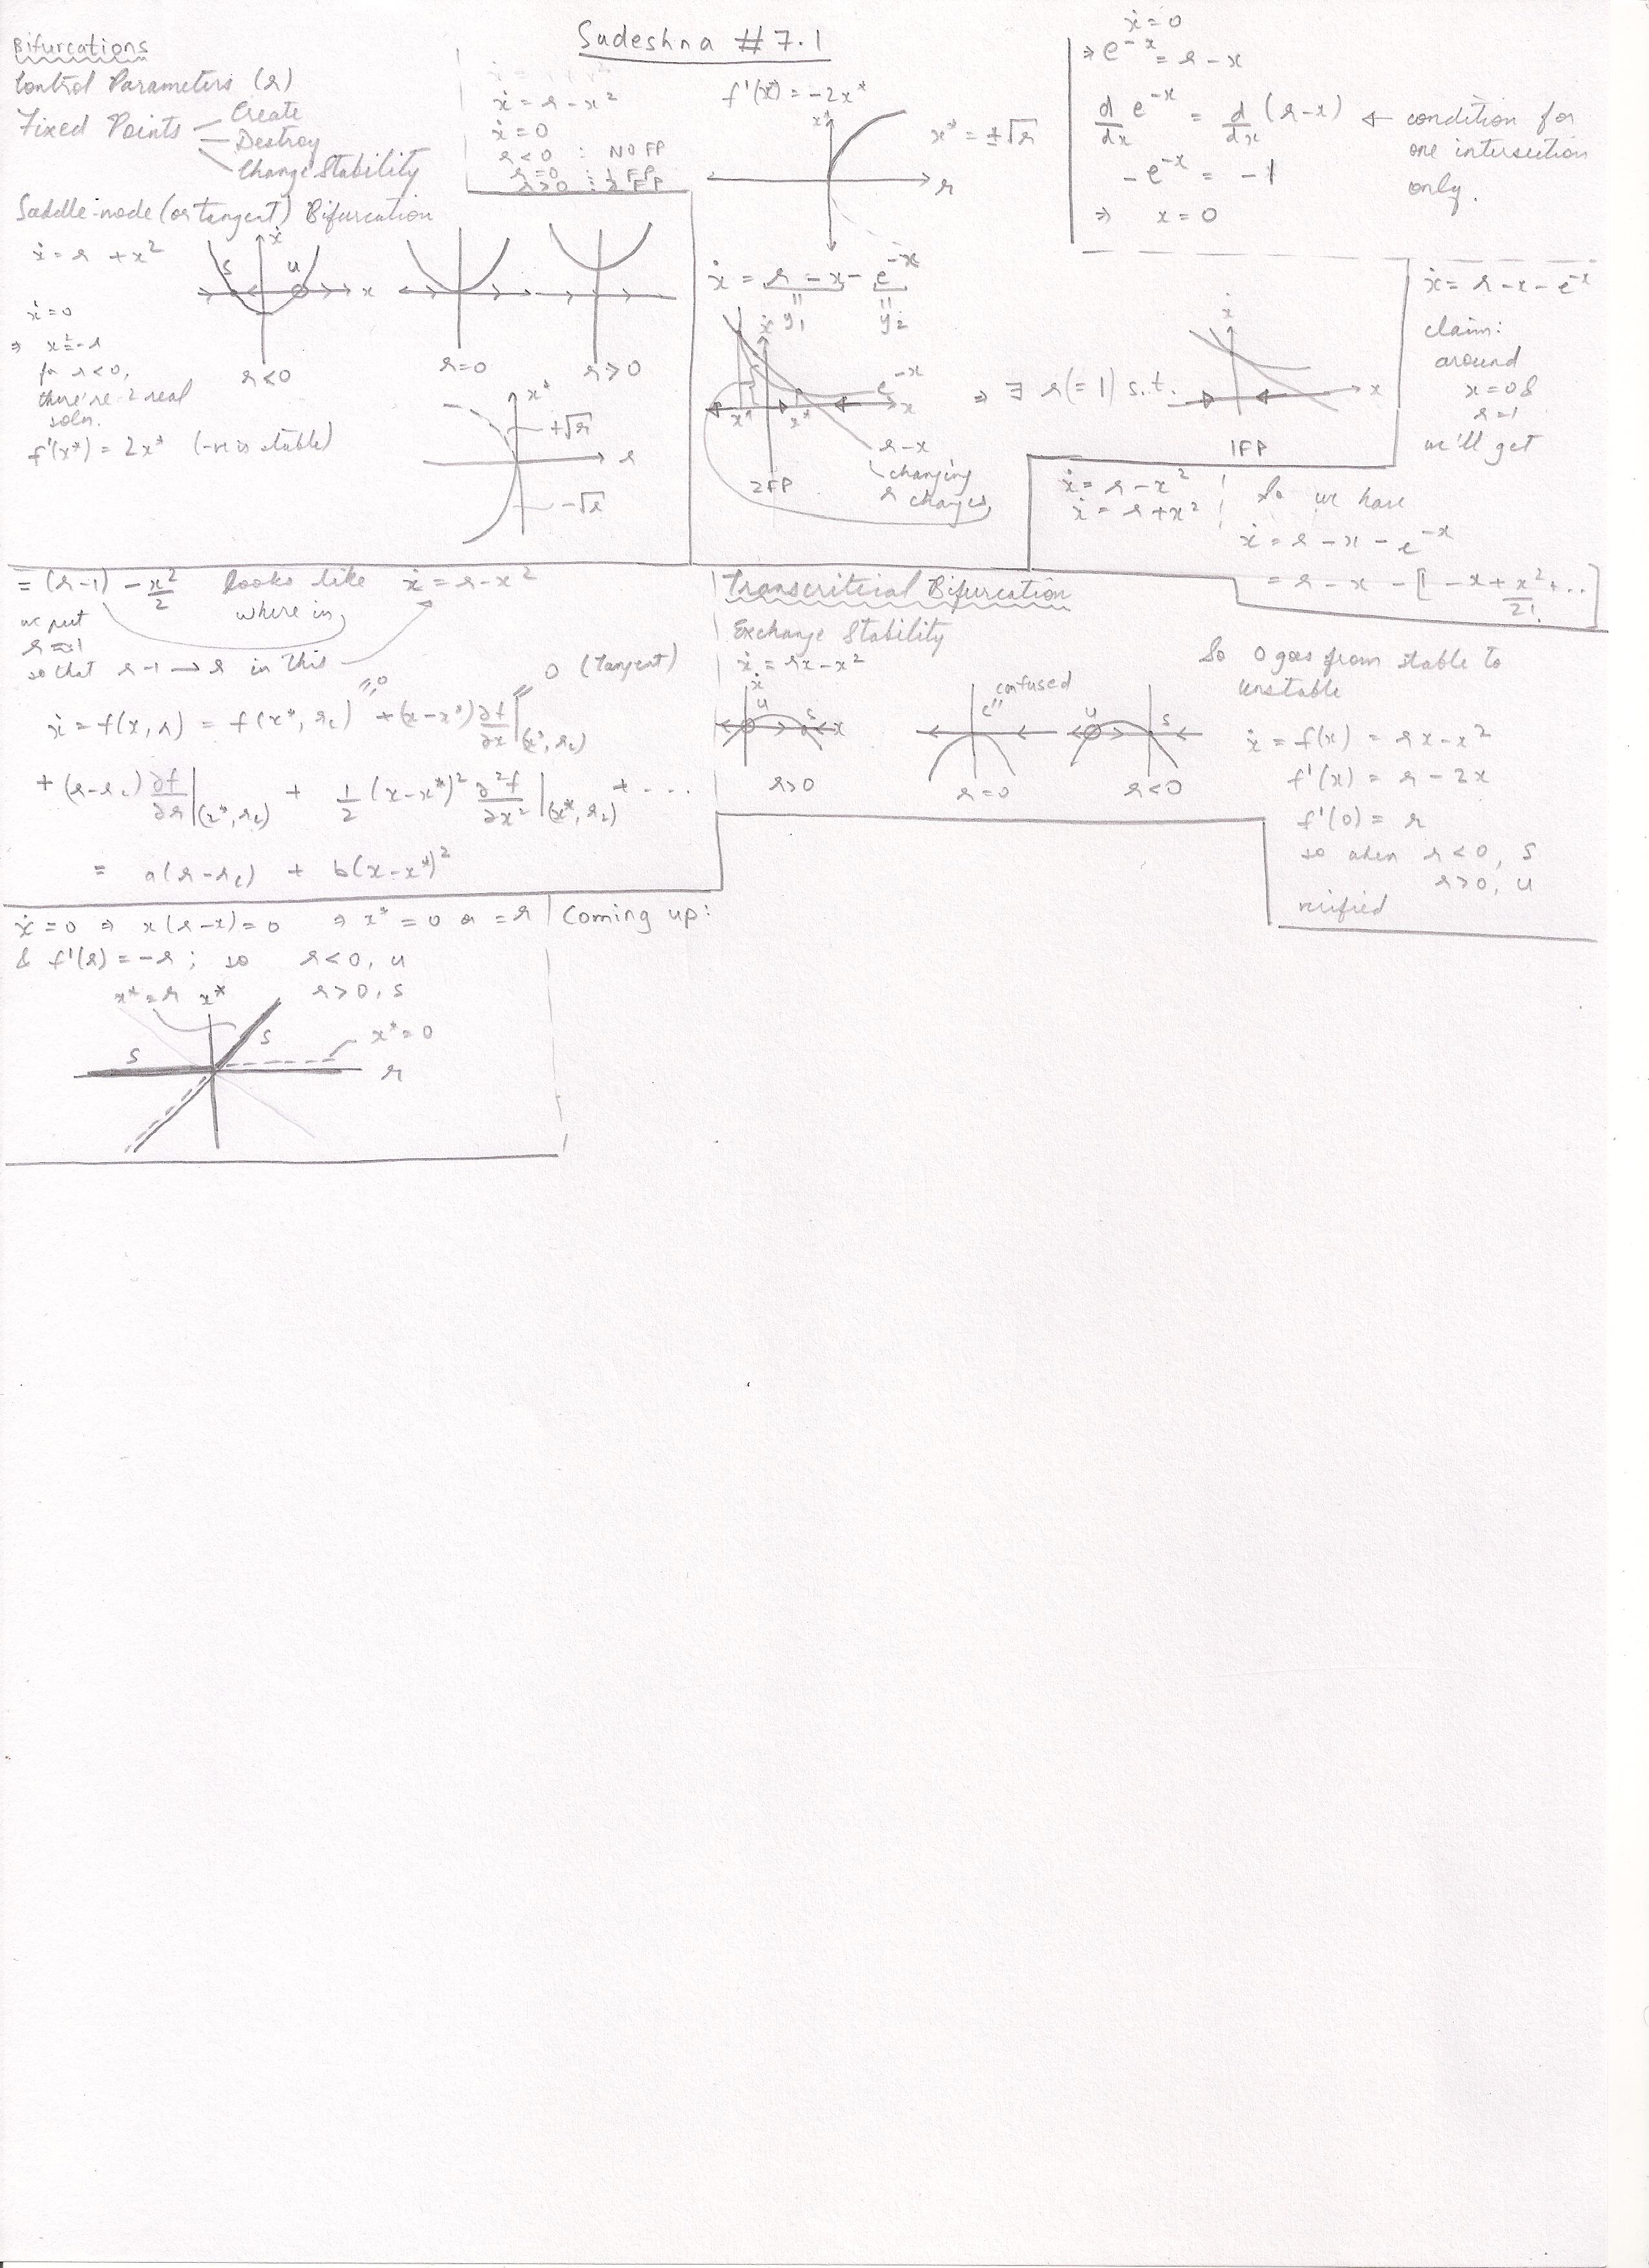 Sudeshna #7.1
Bifurcations
Control Parameters (r)
Fixed Points
Create
Destroy
Change Stability
Saddle-node (or tangent) Bifurcation
ẋ = r + x²
ẋ = 0
⇒ x² = -r
for r<0,
there're 2 real
soln.
f'(x*) = 2x* (-ve is stable)
S
U
ẋ
x
r<0
r=0
r>0
x*
+√r
r
-√r
ẋ = r - x²
ẋ = 0
r<0 : NO FP
r=0 : 1 FP
r>0 : 2 FP
f'(x*) = -2x*
x*
x* = ±√r
r
ẋ = r - x - e^{-x}
y₁
y₂
ẋ
e^{-x}
x
x*
x*
r-x
changing
r changes
2FP
⇒ ∃ r(=1) s.t.
ẋ
x
1FP
ẋ = 0
⇒ e^{-x} = r - x
d/dx e^{-x} = d/dx (r-x) ← condition for
one intersection
only.
-e^{-x} = -1
⇒ x = 0
ẋ = r - x - e^{-x}
claim:
around
x=0 &
r=1
we'll get
ẋ = r - x²
ẋ = r + x²
So we have
ẋ = r - x - e^{-x}
= r - x - [1 - x + x²/2! + ..]
= (r-1) - x²/2 looks like ẋ = r - x²
where in
we put
r=1
so that r-1 → r in this
ẋ = f(x, r) = f(x*, r_c) + (x-x*) ∂f/∂x |(x*, r_c)
= 0
0 (Tangent)
+ (r-r_c) ∂f/∂r |(x*, r_c) + 1/2 (x-x*)² ∂²f/∂x² |(x*, r_c) + ....
= a(r-r_c) + b(x-x*)²
Transcriticial Bifurcation
Exchange Stability
ẋ = rx - x²
ẋ
U
S
x
r>0
confused
r=0
U
S
r<0
So 0 goes from stable to
unstable
ẋ = f(x) = rx - x²
f'(x) = r - 2x
f'(0) = r
so when r<0, S
r>0, U
verified
ẋ = 0 ⇒ x(r-x) = 0 ⇒ x* = 0 or = r
& f'(r) = -r ; so r<0, U
r>0, S
x* = r
x*
S
S
x* = 0
r
Coming up: